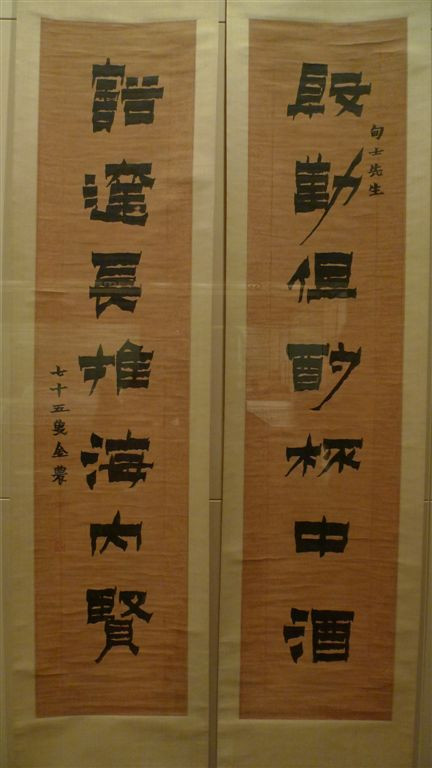 殷勤但酌杯中酒
士先生
豁達長推海內賢
七十五叟金農